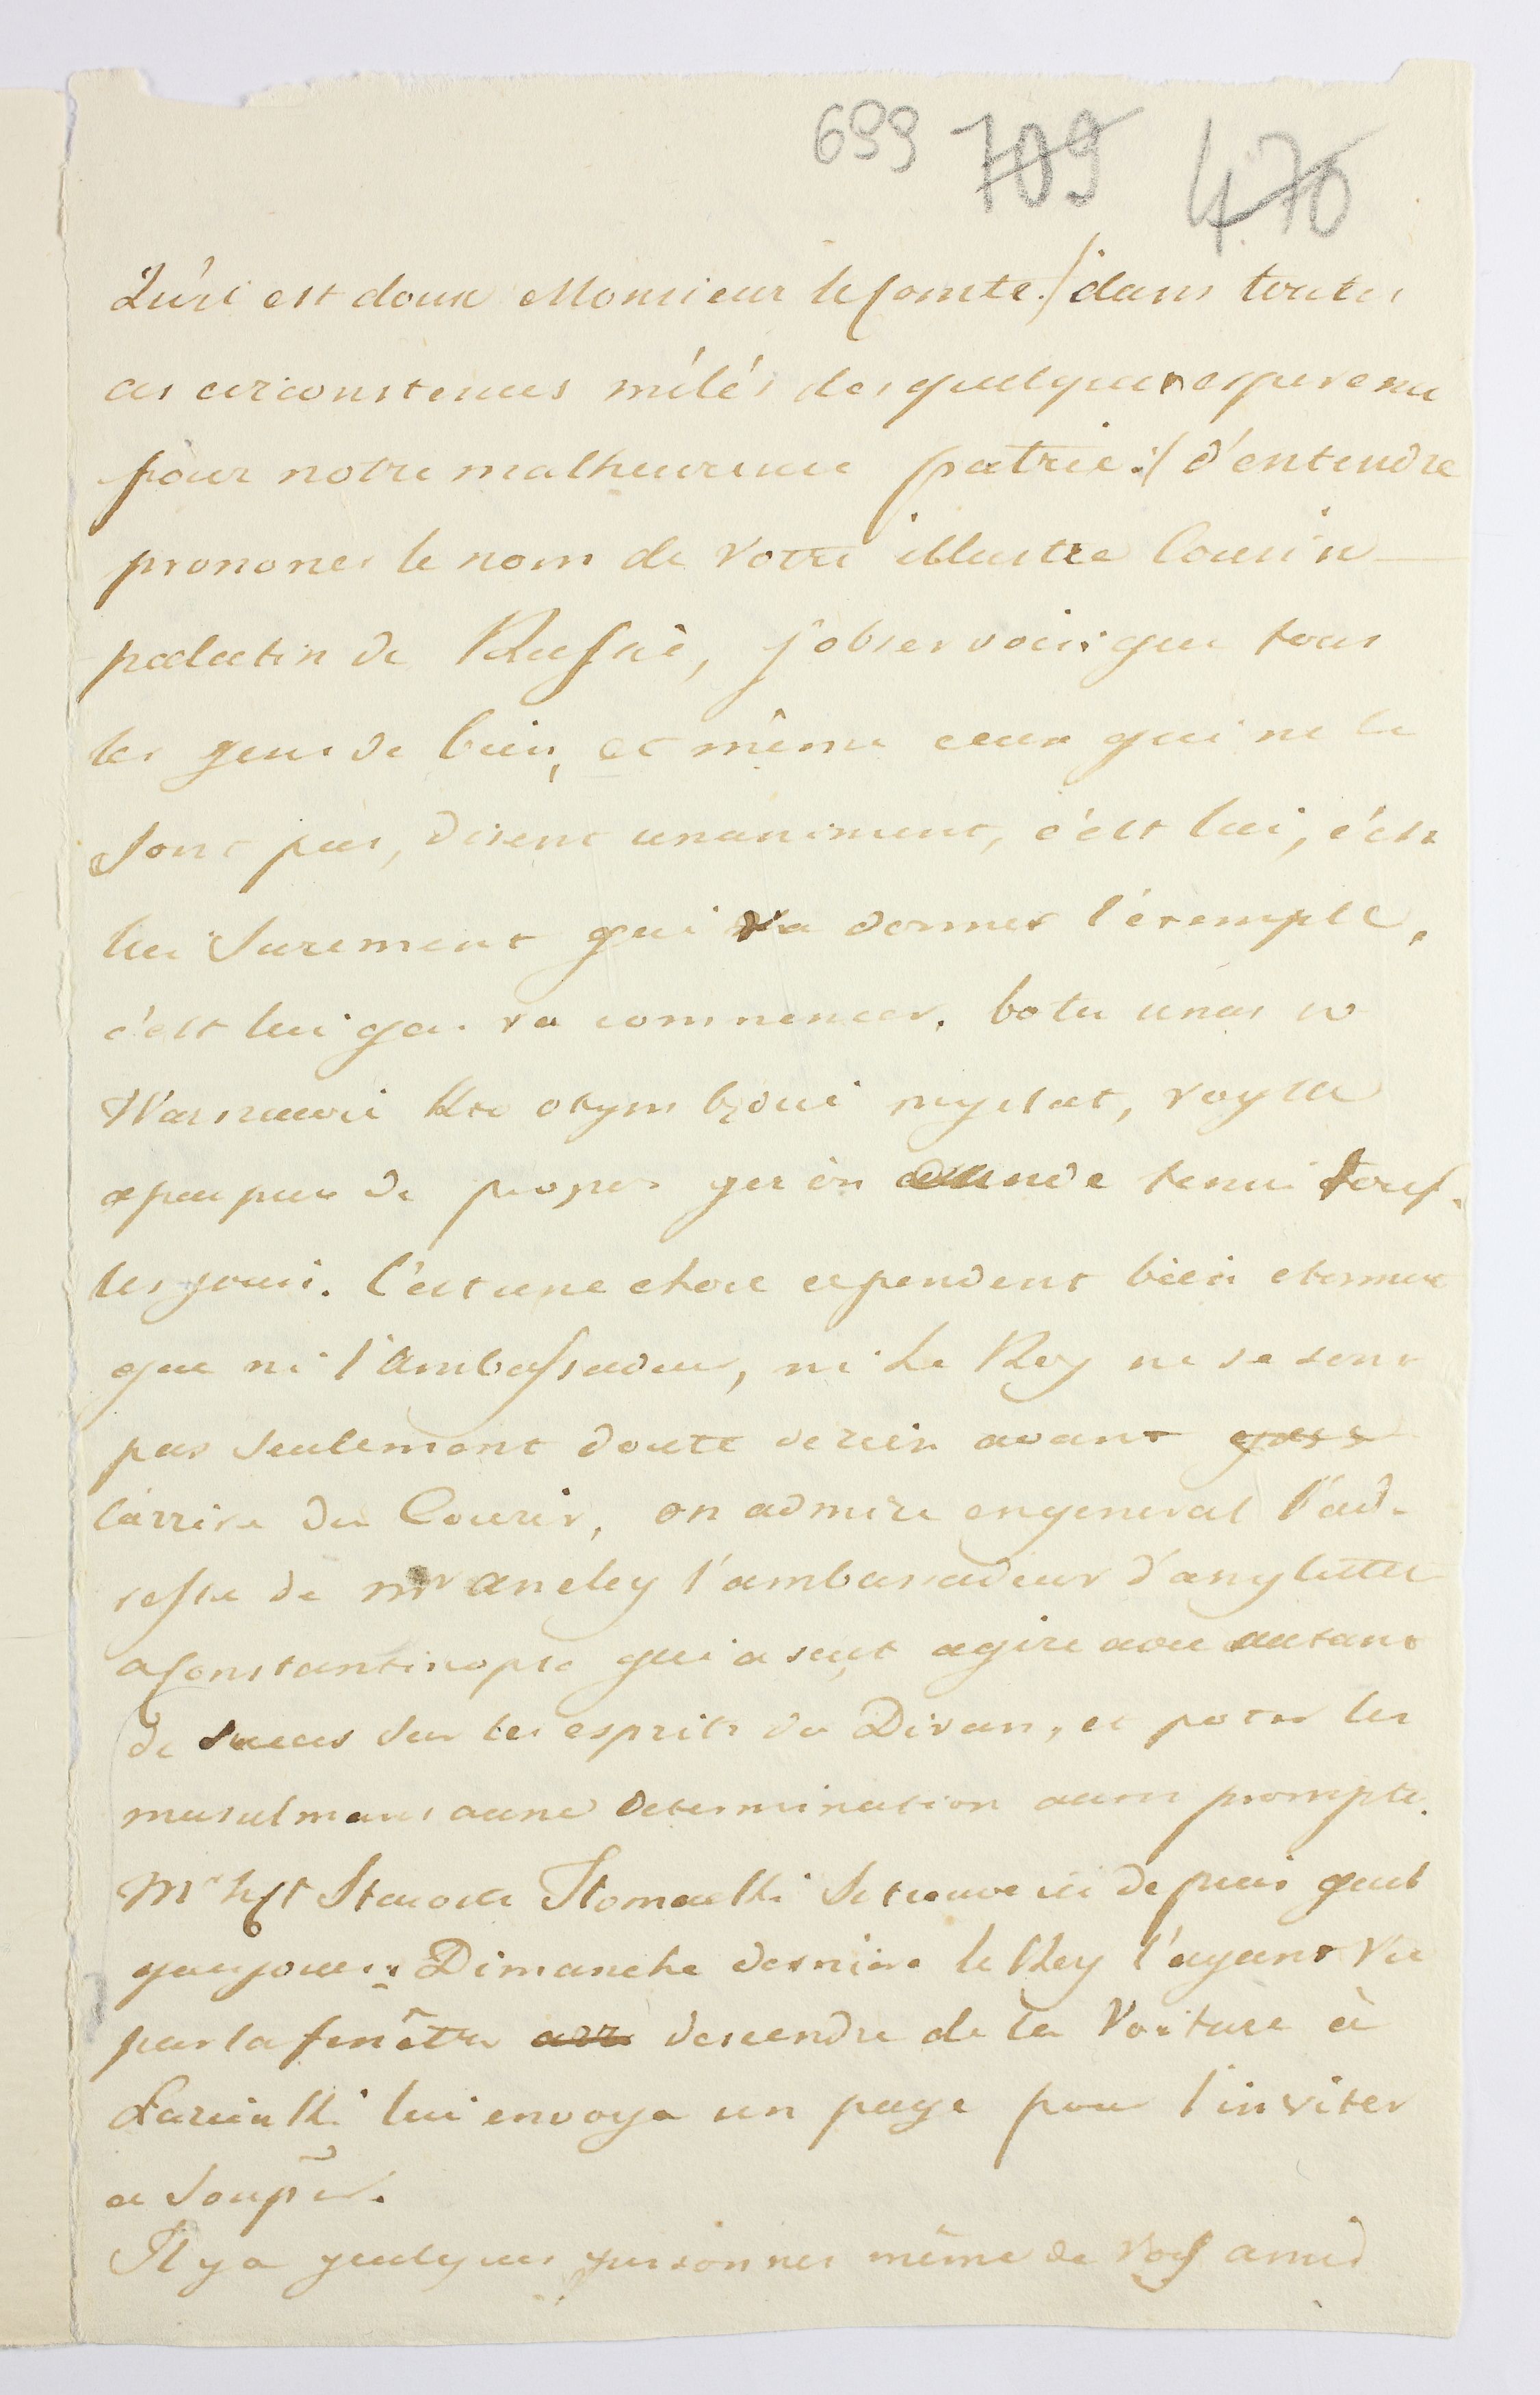 699 709 470
Qu'il est doux Monsieur le Comte :/ dans toutes
ces circonstences mélés des quelques esperence
pour notre malheureuse patrie :/ d'entendre
prononer le nom de Votre illustre Cousin
palatin de Russie, j'observois que tous
les gens de bien, et même ceux qui ne le
sont pas, disent unaniment, c'est lui, c'est
lui surement qui va donner l'éxemple,
c'est lui qui va commencer. bo tu unas w
Warszawie kto otym bzdui myslat, voyla
apeupres de propos qu'on tenu tous
les jours. C'est une chose cependent bien etonnue
que ni l'Ambassadeur, ni Le Roy ne se sont
pas seulement douté de rien avant
l'arrive du Courier, on admire engeneral l'ad-
resse de Mr ansley l'ambassadeur d'angletterre
a Constantinople qui a seut agire avec autant
de succes sur les esprits du Divan, et porter les
musulmans aune determination aussi prompte.
Mr le Staroste se trouve ici depuis quel
que jours. Dimanche dernière le Roy l'ayant vu
par la fenêtre descendre de la Voiture à
Lazienki lui envoya un page pour l'inviter
a Souper.
Il y a quelques personnes même de vos amis